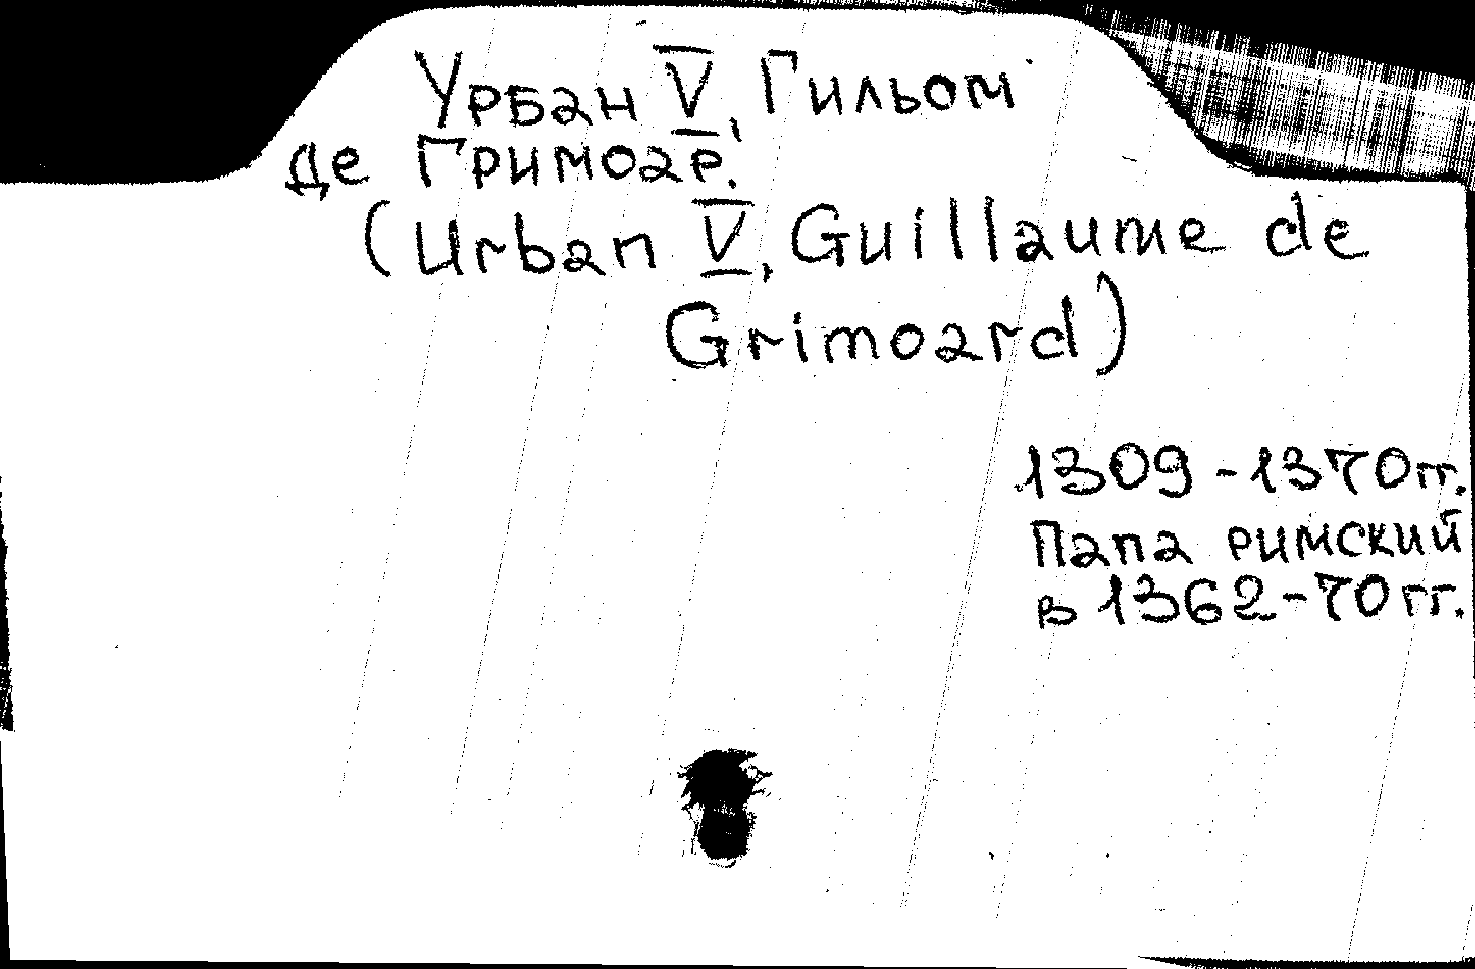 Урбан V, Гильом
де Гримоар.
(Urban V, Guillaume de
Grimoard)
1309-1370 гг.
Папа римский
в 1362-70 гг.